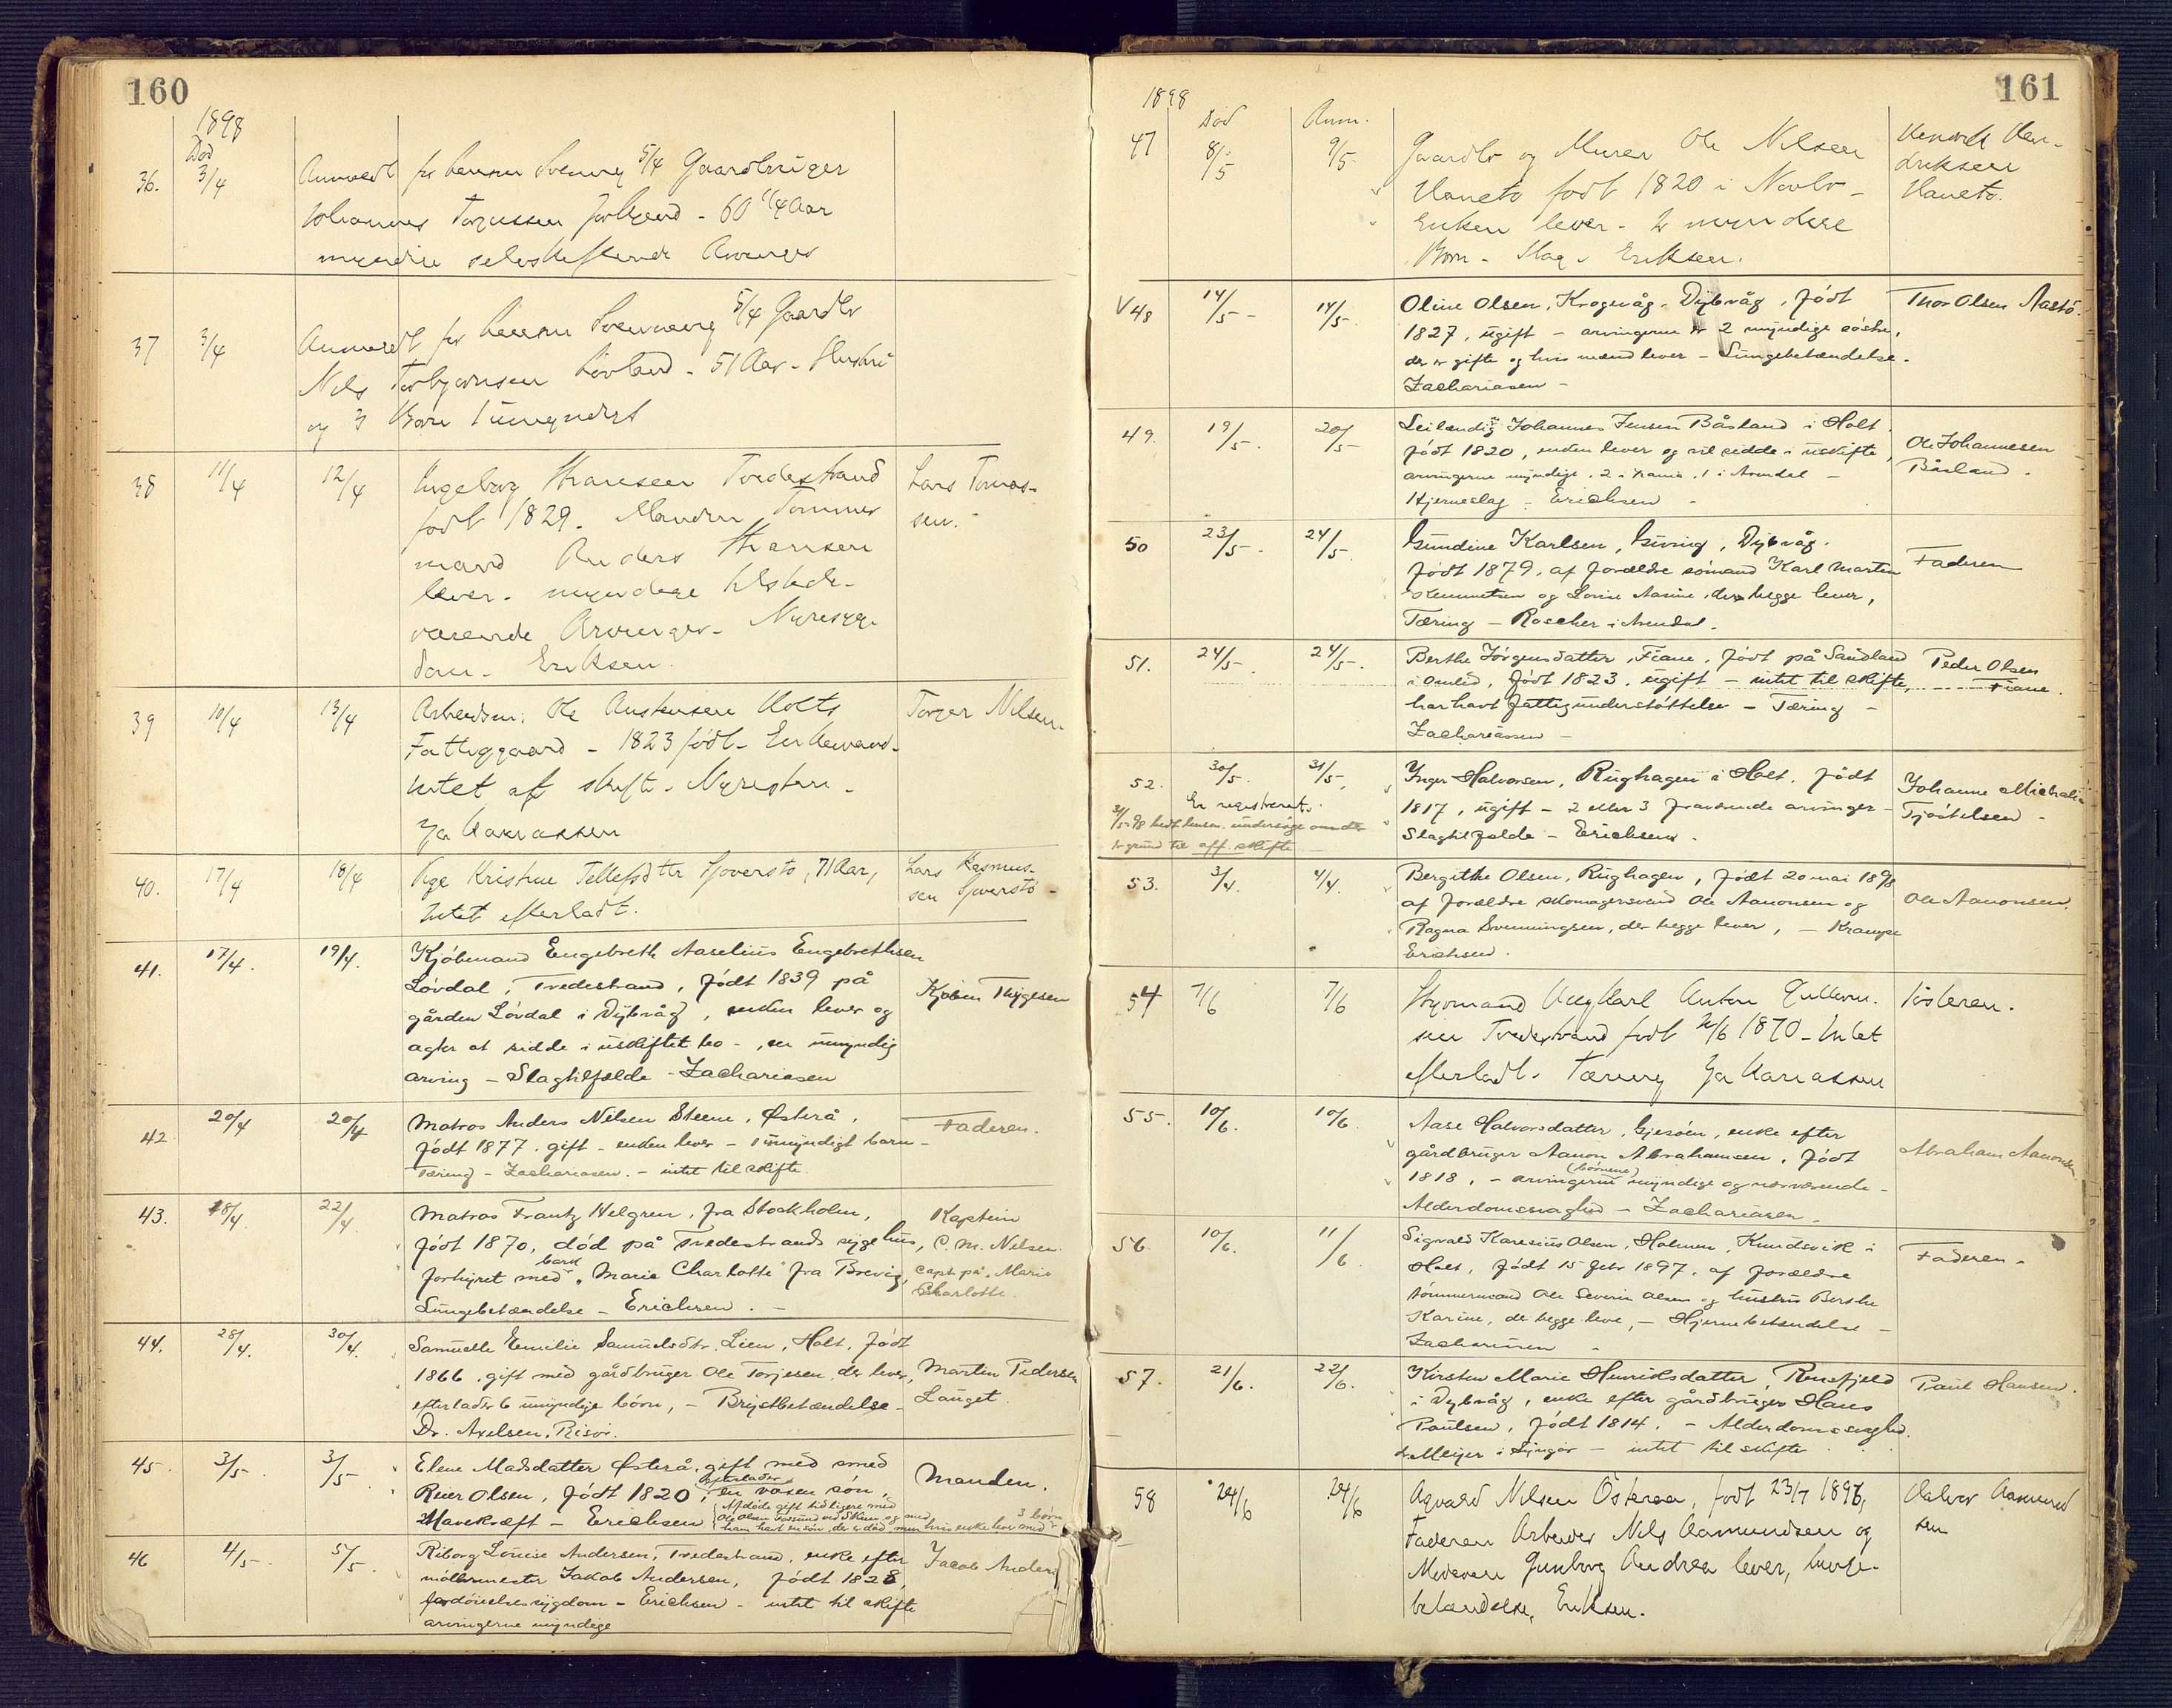 160
1898
Død
36. 3/4 Anmeldt fra Lensm Svennevig 5/4 Gaardbruger
Johannes Torjussen - 60 1/4 Aar
myndige selvskiftende Arvinger
37 3/4 Anmeldt fra Lensm Svennevig 5/4 Gaardbr
Nils Torbjørnsen Løvland - 51 Aar - Hustru
og 3 Børn 1 umyndigt
38 11/4 12/4 Ingeborg Hansen Tvedestrand Lars Tomas-
født 1829. Manden Tømmer sen.
mand Anders Hansen
lever - myndige tilstede-
værende Arvinger - Nyresyg-
dom - Eriksen.
39 10/4 13/4 Arbeidsm. Ole Austensen Holts Torger Nilsen
Fattiggaard - 1823 født - Enkemand -
Intet at skifte - Nyresten -
Zakariassen
40. 17/4 18/4 Pige Kristine Tellefsdtr Sjoverstø, 71 Aar, Lars Rasmus-
Intet efterladt. sen Sjverstø -
41. 17/4. 19/4. Kjöbmand Engebreth Aaselius Engebrethsen
Lövdal, Tvedestrand, född 1839 på Kjøbm Thygesen
gården Lövdal i Dybvåg, enken lever og
agter at sidde i uskiftet bo -, en umyndig
arving - Slagtilfælde - Zachariasen
42 20/4 20/4 Matros Anders Nilsen Steene, Østerå, Faderen.
født 1877. gift - enken lever - 1 umyndigt barn -
Tæring - Zachariasen. - intet til skifte.
43. 18/4. 22/4. Matros Frantz Helgren, fra Stockholm, Kaptein
født 1870, död på Tvedestrands sygehus, C. M. Nilsen.
forhyret med bark "Marie Charlotte" fra Brevig, capt. på "Marie
Lungebetændelse - Erichsen. - Charlotte.
44. 28/4. 30/4. Samuelle Emilie Samuelsdtr. Lien, Holt, født
1866, gift med gårdbruger Ole Torjesen, der lever, Martin Pedersen
efterlader 6 umyndige börn, - Brystbetændelse - Lauget.
Dr. Axelsen, Risör.
45. 3/5. 3/5. Elene Madsdatter Østerå, gift med smed Manden.
Reier Olsen, född 1820, efterlader en voxen sön,
Mavekræft - Erichsen { Afdøde gift tidligere med
Ole Olsen Fosund ved Skien og med
ham havt en søn, der er död, men hvis enke lever med 3 börn
46 4/5. 5/5. Riborg Louise Andersen, Tvedestrand, enke efter Jacob Anders
möllermester Jakob Andersen, født 1828,
fordöielsessygdom - Erichsen - intet til skifte
arvingerne myndige
161
1898
Død Anm.
47 8/5 9/5. Gaardbr og Murer Ole Nilsen Henrik Hen-
Haneto født 1820 i Novbr - driksen
Enken lever - 2 myndige Haneto.
Børn - Slag - Eriksen.
V 48 14/5 - 14/5. Oline Olsen, Krogvåg, Dybvåg, född Thor Olsen Aastö.
1827, ugift - arvingerne er 2 myndige söstre,
der er gifte og hvis mænd lever - Lungebetændelse.
Zachariasen -
49. 19/5. 20/5 Leilænding Johannes Jensen Båsland i Holt
født 1820, enken lever og vil sidde i uskifte, Ole Johannesen
arvingerne myndige. 2 i, 1 i Arendal - Båsland.
Hjerneslag - Erichsen -
50 23/5. 24/5. Gundine Karlsen, Gjeving, Dybvåg.
født 1879. af forældre sömand Karl Martin Faderen
og Lovise, der begge lever,
Tæring - Roscher i Arendal.
51. 24/5. 24/5. Berthe Jörgensdatter, Fiane, född på Sandland Peder Olsen
i Omlid, född 1823, ugift - intet til skifte, Fiane.
har havt fattigunderstöttelse - Tæring -
Zachariassen -
52. 30/5. 31/5. Inger Halvorsen, Rughagen i Holt, født Johanne Michalie
En registreret. 1817, ugift - 2 eller 3 fraværende arvinger - Tjöstelsen -
31/5 98 bedt lensm. undersøge om der Slagtilfælde - Erichsen -
er grund til off. skifte
53. 3/4. 4/4. Bergithe Olsen, Rughagen, født 20 mai 1898
af forældre skomagersvend Ole Aanonsen og Ole Aanonsen.
Ragna Svenningsen, der begge lever, - Krampe
Erichsen.
54 7/6 7/6 Styrmand Karl Anton Gullorm- Søsteren.
sen Tvedestrand født /6 1870 - Intet
efterladt. Tæring Zakariassen
55. 10/6. 10/6. Aase Halvorsdatter, Gjesöen, enke efter
gårdbruger Aanon Abrahamsen, født Abraham Aanonsen
1818, - arvingerne (börnene) myndige og nærværende -
Alderdomssvaghed - Zachariasen.
56. 10/6. 11/6 Sigvald Karesius Olsen, Holmen, Knudsvik i Faderen -
Holt, født 15 febr 1897. af forældre
tömmermand Ole Severin Olsen og hustru Berthe
Karine, der begge leve, - Hjernebetændelse -
Zachariasen -
57. 21/6. 22/6. Kirsten Marie Henriksdatter, Rensfjeld Paul Hansen.
i Dybvåg, enke efter gårdbruger Hans
Paulsen, født 1814. - Alderdomssvaghed.
dr Meyer i Lyngör - intet til skifte
58 24/6 24/6 Agvald Nilsen Österaa, født 23/7 1896, Halvor Aamund
Faderen Arbeider Nils Aamundsen og sen
Moderen Gunborg Andrea lever, Lunge-
betændelse, Eriksen.